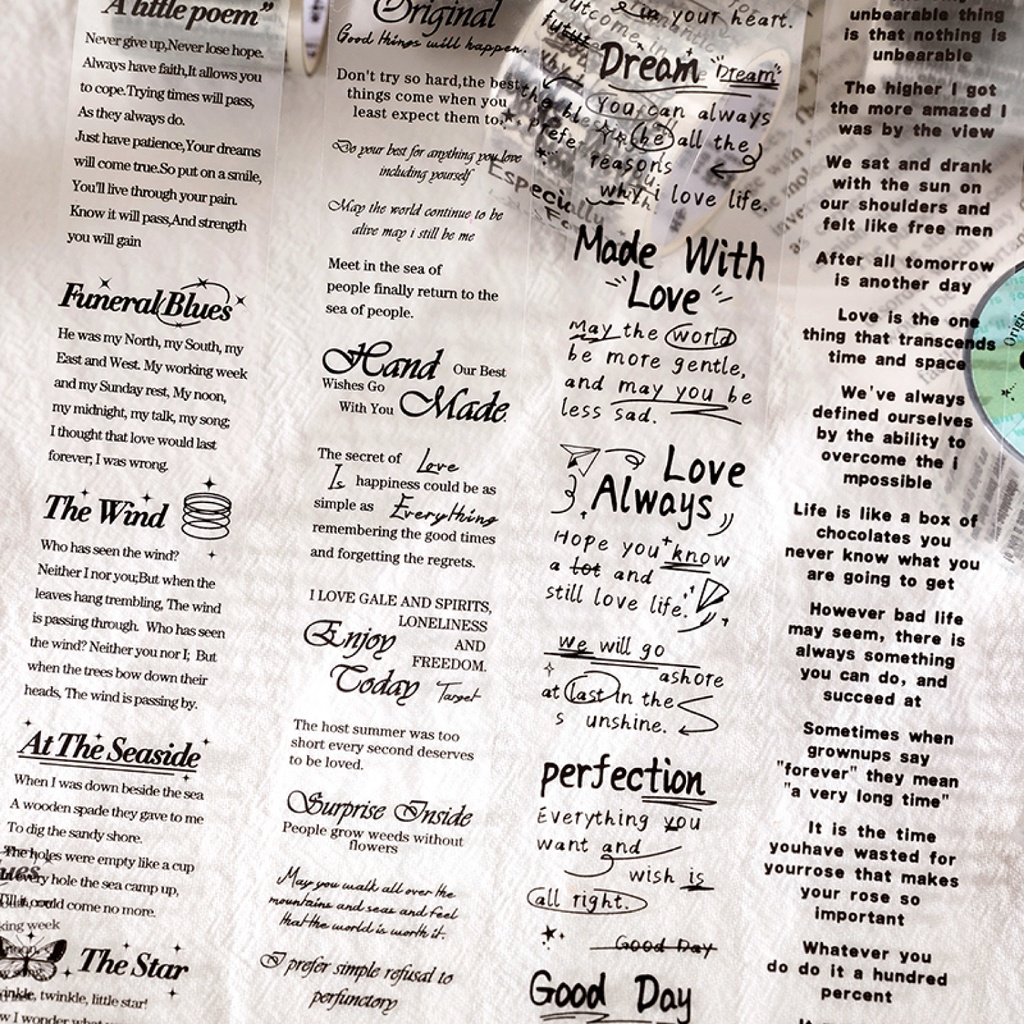 A little poem”
Never give up,Never lose hope.
Always have faith,It allows you
to cope.Trying times will pass,
As they always do.
Just have patience,Your dreams
will come true.So put on a smile,
You'll live through your pain.
Know it will pass,And strength
you will gain
Funeral Blues
He was my North, my South, my
East and West. My working week
and my Sunday rest, My noon,
my midnight, my talk, my song;
I thought that love would last
forever; I was wrong.
The Wind
Who has seen the wind?
Neither I nor you;But when the
leaves hang trembling, The wind
is passing through. Who has seen
the wind? Neither you nor I; But
when the trees bow down their
heads, The wind is passing by.
At The Seaside
When I was down beside the sea
A wooden spade they gave to me
To dig the sandy shore.
The holes were empty like a cup
every hole the sea camp up,
could come no more.
king week
The Star
twinkle, little star!
I wonder
Original
Good things will happen.
Don't try so hard,the best
things come when you
least expect them to.
Do your best for anything you love
including yourself
May the world continue to be
alive may i still be me
Meet in the sea of
people finally return to the
sea of people.
Hand Our Best
Wishes Go
With You Made
The secret of Love
Is happiness could be as
simple as Everything
remembering the good times
and forgetting the regrets.
I LOVE GALE AND SPIRITS,
LONELINESS
Enjoy AND
FREEDOM.
Today Target
The host summer was too
short every second deserves
to be loved.
Surprise Inside
People grow weeds without
flowers
May you walk all over the
mountains and seas and feel
that the world is worth it.
I prefer simple refusal to
perfunctory
in your heart.
Dream "Dream"
You can always
be all the
reasons
why i love life.
Especially
Made With
"Love"
May the world
be more gentle,
and may you be
less sad.
Love
Always
Hope you know
a lot and
still love life.
We will go
ashore
at last in the
s unshine.
perfection
Everything you
want and
wish is
all right.
Good Day
Good Day
unbearable thing
is that nothing is
unbearable
The higher I got
the more amazed I
was by the view
We sat and drank
with the sun on
our shoulders and
felt like free men
After all tomorrow
is another day
Love is the one
thing that transcends
time and space
We've always
defined ourselves
by the ability to
overcome the i
mpossible
Life is like a box of
chocolates you
never know what you
are going to get
However bad life
may seem, there is
always something
you can do, and
succeed at
Sometimes when
grownups say
"forever" they mean
"a very long time"
It is the time
youhave wasted for
yourrose that makes
your rose so
important
Whatever you
do do it a hundred
percent